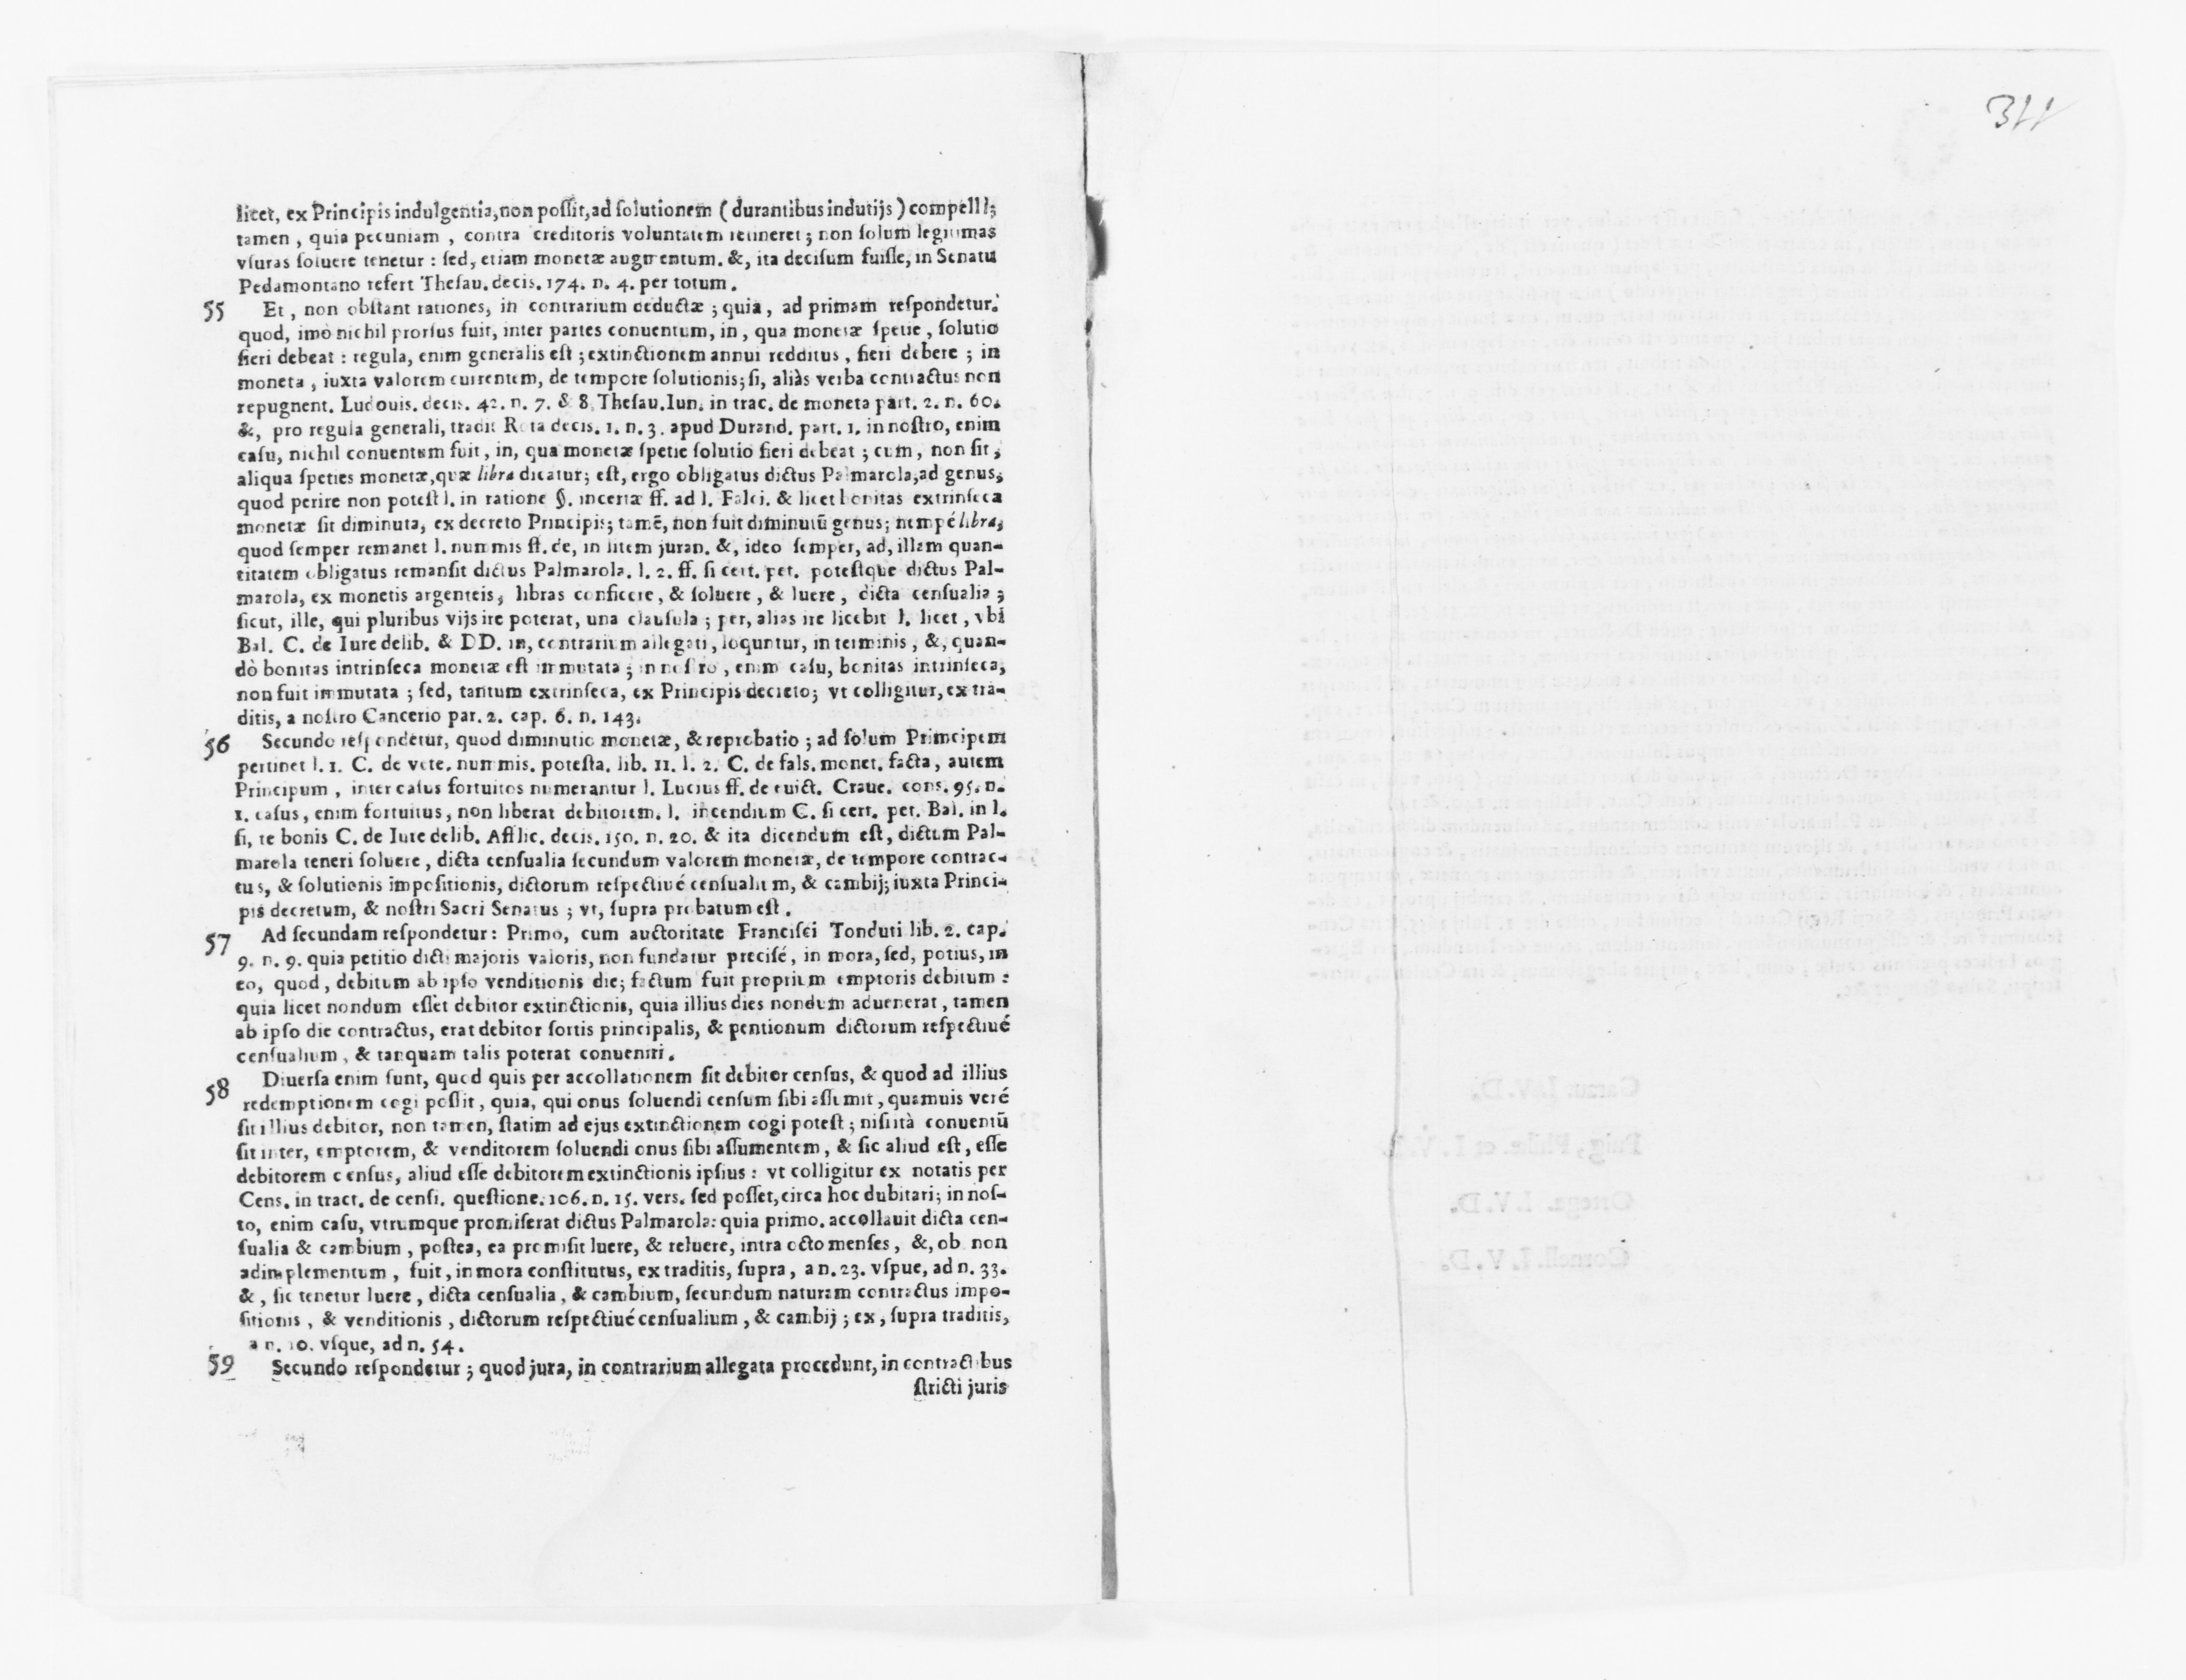 licet, ex Principis indulgentia, non possit, ad solutionem ( durantibus indutijs ) compelli;
tamen , quia pecuniam , contra creditoris voluntatem retineret ; non solum legitimas
vsuras soluere tenetur : sed, etiam monetæ augmentum. &, ita decisum fuisse, in Senatu
Pedamontano refert Thesau. decis. 174. n. 4. per totum .
55 Et , non obstant rationes, in contrarium deductæ ; quia , ad primam respondetur.
quod, imò nichil prorsus fuit, inter partes conuentum, in , qua monetæ spetie , solutio
fieri debeat : regula, enim generalis est ; extinctionem annui redditus , fieri debere ; in
moneta , iuxta valorem currentem, de tempore solutionis; si, aliàs verba contractus non
repugnent. Ludouis. decis. 42. n. 7. & 8. Thesau. Iun. in trac. de moneta part. 2. n. 60.
&, pro regula generali, tradit Rota decis. 1. n. 3. apud Durand. part. 1. in nostro, enim
casu, nichil conuentum fuit , in, qua monetæ spetie solutio fieri debeat ; cum , non sit ,
aliqua speties monetæ, quæ libra dicatur; est, ergo obligatus dictus Palmarola, ad genus,
quod perire non potest l. in ratione §. incertæ ff. ad l. Falci. & licet bonitas extrinseca
monetæ sit diminuta, ex decreto Principis; tamẽ, non fuit diminutũ genus; nempé libra,
quod semper remanet l. nummis ff. de, in litem juran. &, ideo semper, ad, illam quan-
titatem obligatus remansit dictus Palmarola. l. 2. ff. si cert. pet. potestque dictus Pal-
marola, ex monetis argenteis, libras conficere, & soluere , & luere , dicta censualia ;
sicut, ille, qui pluribus vijs ire poterat, una clausula ; per, alias ire licebit l. licet , vbi
Bal. C. de Iure delib. & DD. in, contrarium allegati, loquntur, in terminis , &, quan-
dò bonitas intrinseca monetæ est immutata ; in nostro , enim casu, bonitas intrinseca,
non fuit immutata ; sed, tantum extrinseca, ex Principis decreto; vt colligitur, ex tra-
ditis, a nostro Cancerio par. 2. cap. 6. n. 143.
56 Secundo respondetur, quod diminutio monetæ, & reprobatio ; ad solum Principem
pertinet l. 1. C. de vete. nummis. potesta. lib. 11. l. 2. C. de fals. monet. facta , autem
Principum , inter casus fortuitos numerantur l. Lucius ff. de euict. Craue. cons. 95. n.
1. casus , enim fortuitus , non liberat debitorem. l. incendium C. si cert. pet. Bal. in l.
si, te bonis C. de Iure delib. Afflic. decis. 150. n. 20. & ita dicendum est, dictum Pal-
marola teneri soluere , dicta censualia secundum valorem monetæ, de tempore contrac-
tus, & solutionis impositionis, dictorum respectiué censualium, & cambij; iuxta Princi-
pis decretum, & nostri Sacri Senatus ; vt, supra probatum est .
57 Ad secundam respondetur : Primo, cum auctoritate Francisci Tonduti lib. 2. cap.
9. n. 9. quia petitio dicti majoris valoris, non fundatur precisé, in mora, sed, potius, in
eo, quod , debitum ab ipso venditionis die; factum fuit proprium emptoris debitum :
quia licet nondum esset debitor extinctionis, quia illius dies nondum aduenerat , tamen
ab ipso die contractus, erat debitor sortis principalis, & pentionum dictorum respectiué
censualium , & tanquam talis poterat conueniri .
58 Diuersa enim sunt, quod quis per accollationem sit debitor census, & quod ad illius
redemptionem cogi possit , quia, qui onus soluendi censum sibi assumit , quamuis veré
sit illius debitor, non tamen, statim ad ejus extinctionem cogi potest ; nisi ità conuentũ
sit inter, emptorem, & venditorem soluendi onus sibi assumentem , & sic aliud est, esse
debitorem census, aliud esse debitorem extinctionis ipsius : vt colligitur ex notatis per
Cens. in tract. de censi. questione. 106. n. 15. vers. sed posset, circa hoc dubitari; in nos-
to, enim casu, vtrumque promiserat dictus Palmarola: quia primo. accollauit dicta cen-
sualia & cambium , postea, ea promisit luere, & reluere, intra octo menses, &, ob non
adimplementum , fuit , in mora constitutus, ex traditis, supra , a n. 23. vspue, ad n. 33.
& , sic tenetur luere , dicta censualia , & cambium, secundum naturam contractus impo-
sitionis , & venditionis , dictorum respectiué censualium , & cambij ; ex , supra traditis,
a n. 10. vsque, ad n. 54.
59 Secundo respondetur ; quod jura, in contrarium allegata procedunt, in contractibus
stricti juris
311